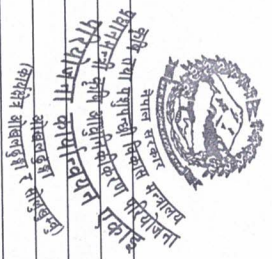 नेपाल सरकार
कृषि तथा पशुपन्छी विकास मन्त्रालय
प्रधानमन्त्री कृषि आधुनिकीकरण परियोजना
परियोजना कार्यान्वयन एकाई
ओखलढुङ्गा
कार्यक्षेत्र ओखलढुङ्गा र